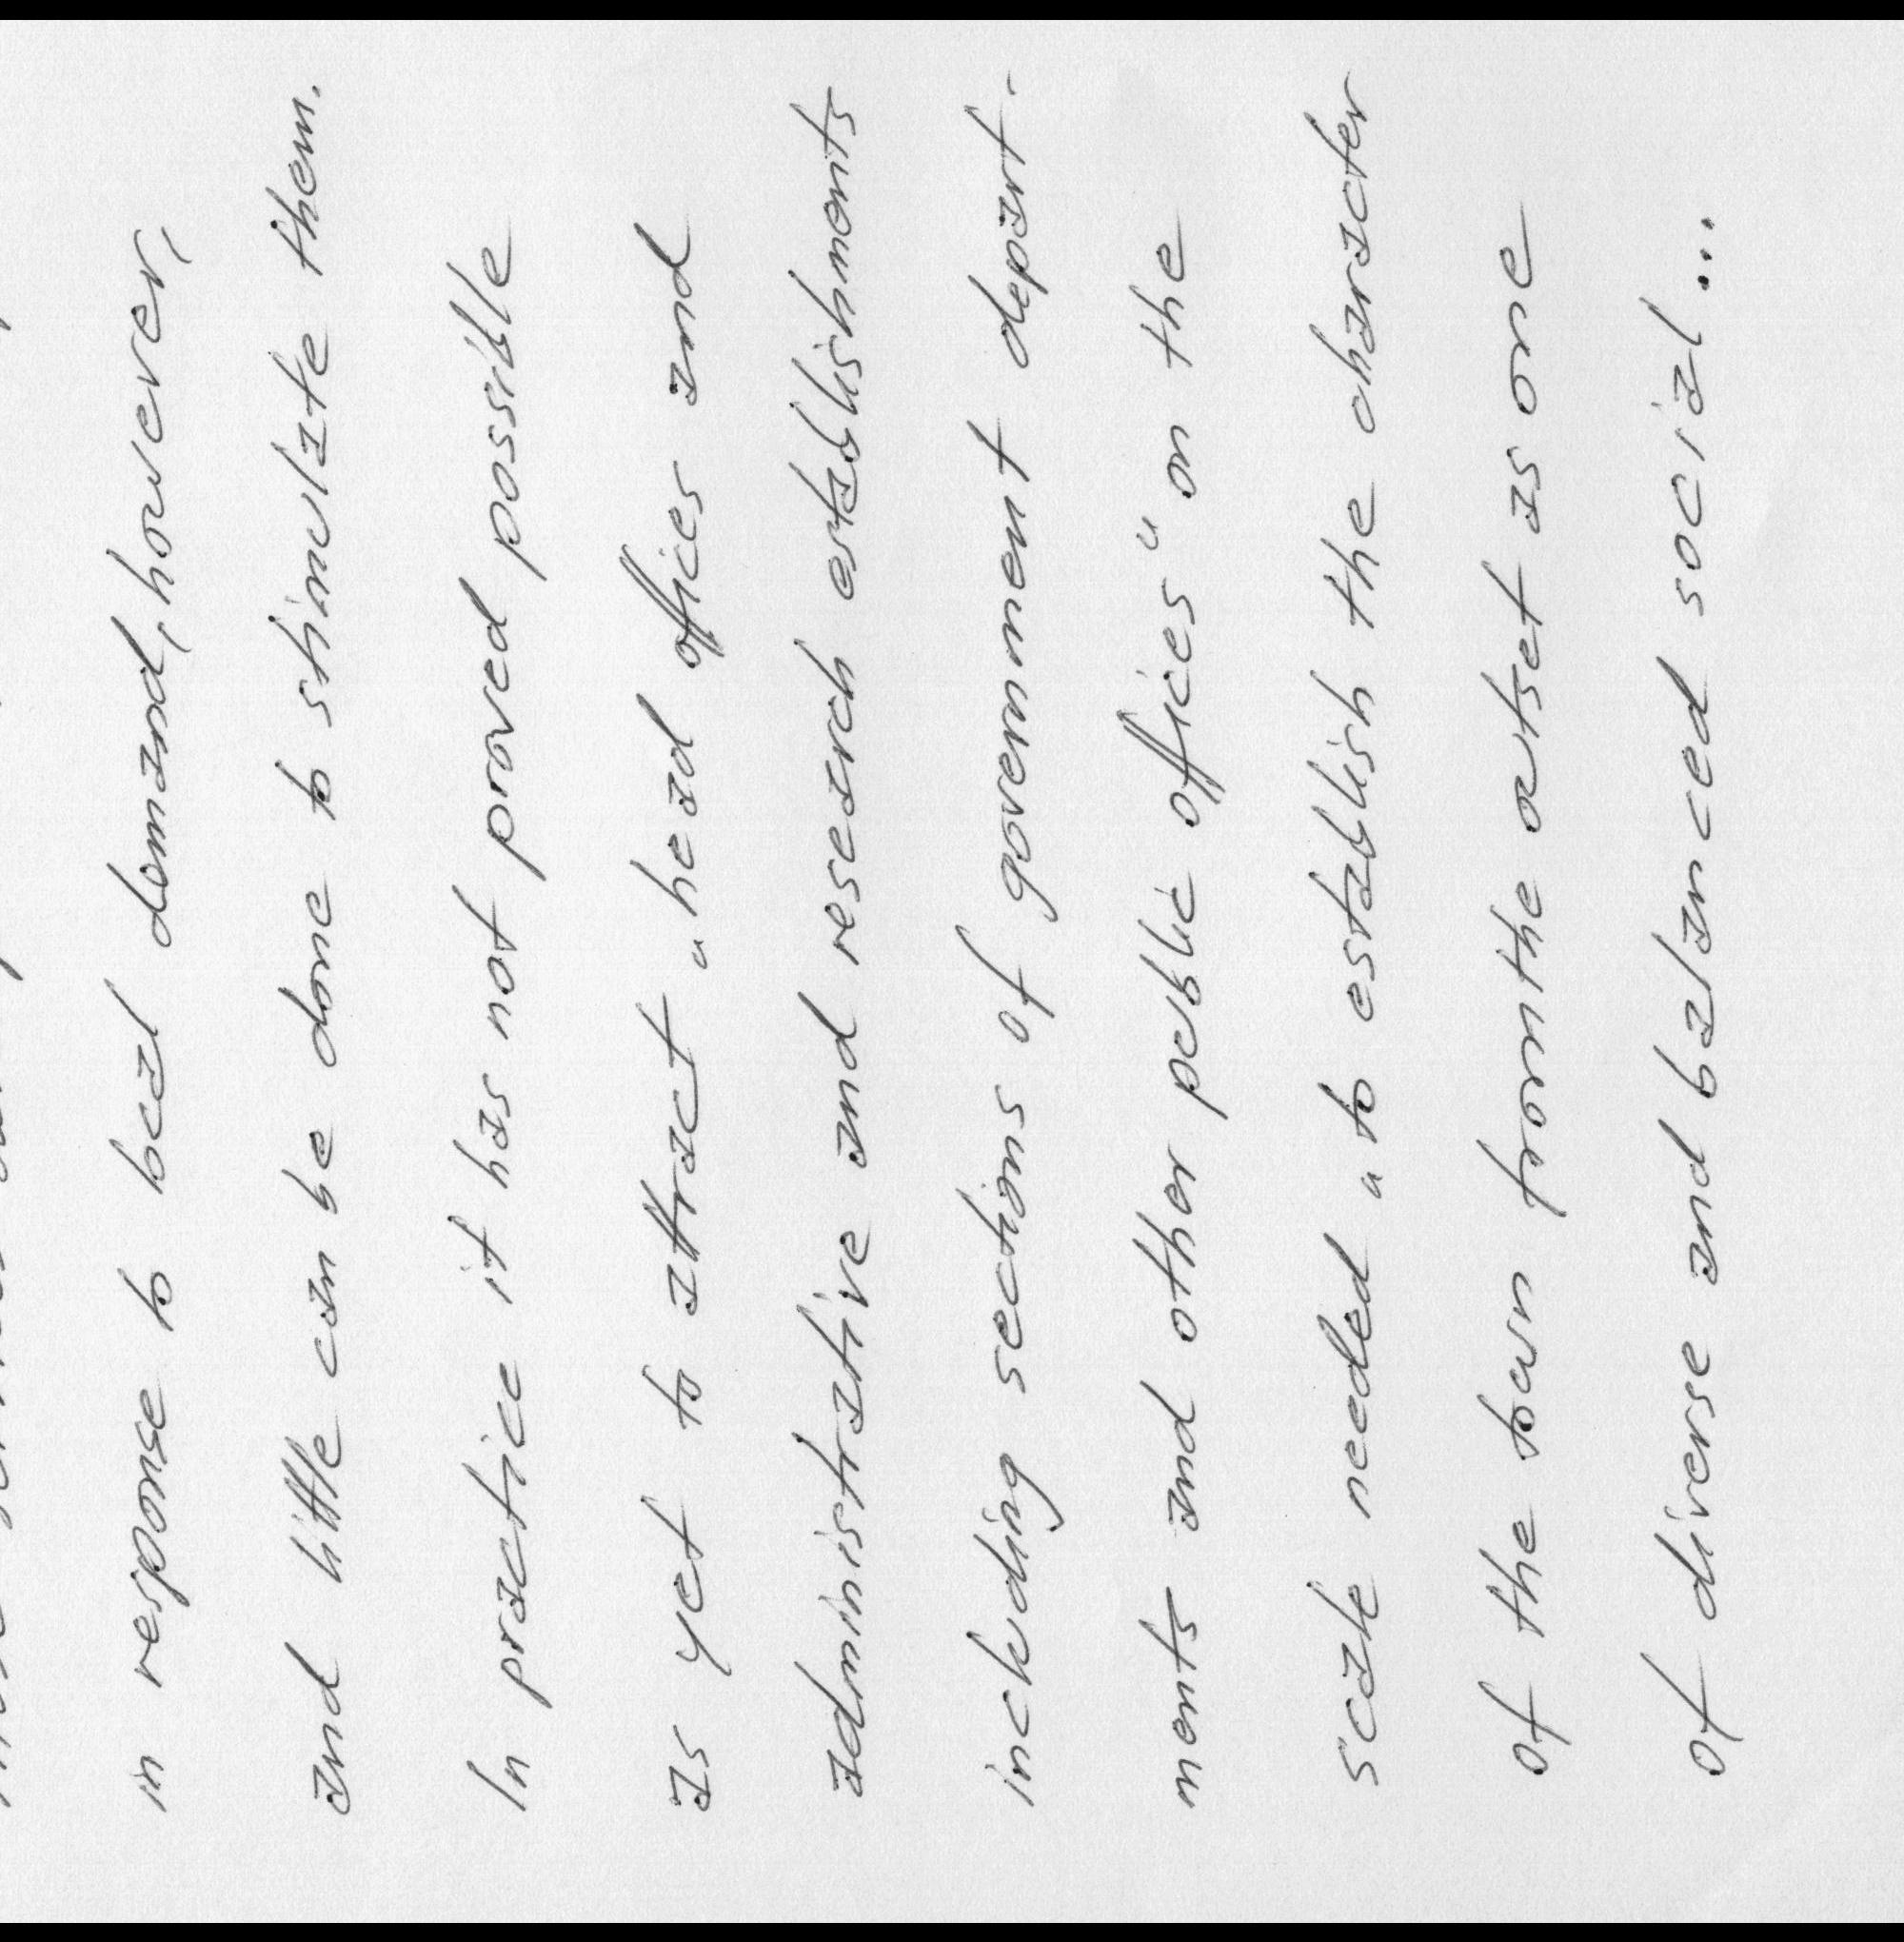 in response to local demand, however,
and little can be done to stimulate them.
In practice it has not proved possible
as yet to attract "head offices and
administrative and research establishments
including sections of government depart-
ments and other public offices" on the
scale needed "to establish the character
of the town from the outset as one
of diverse and balanced social...